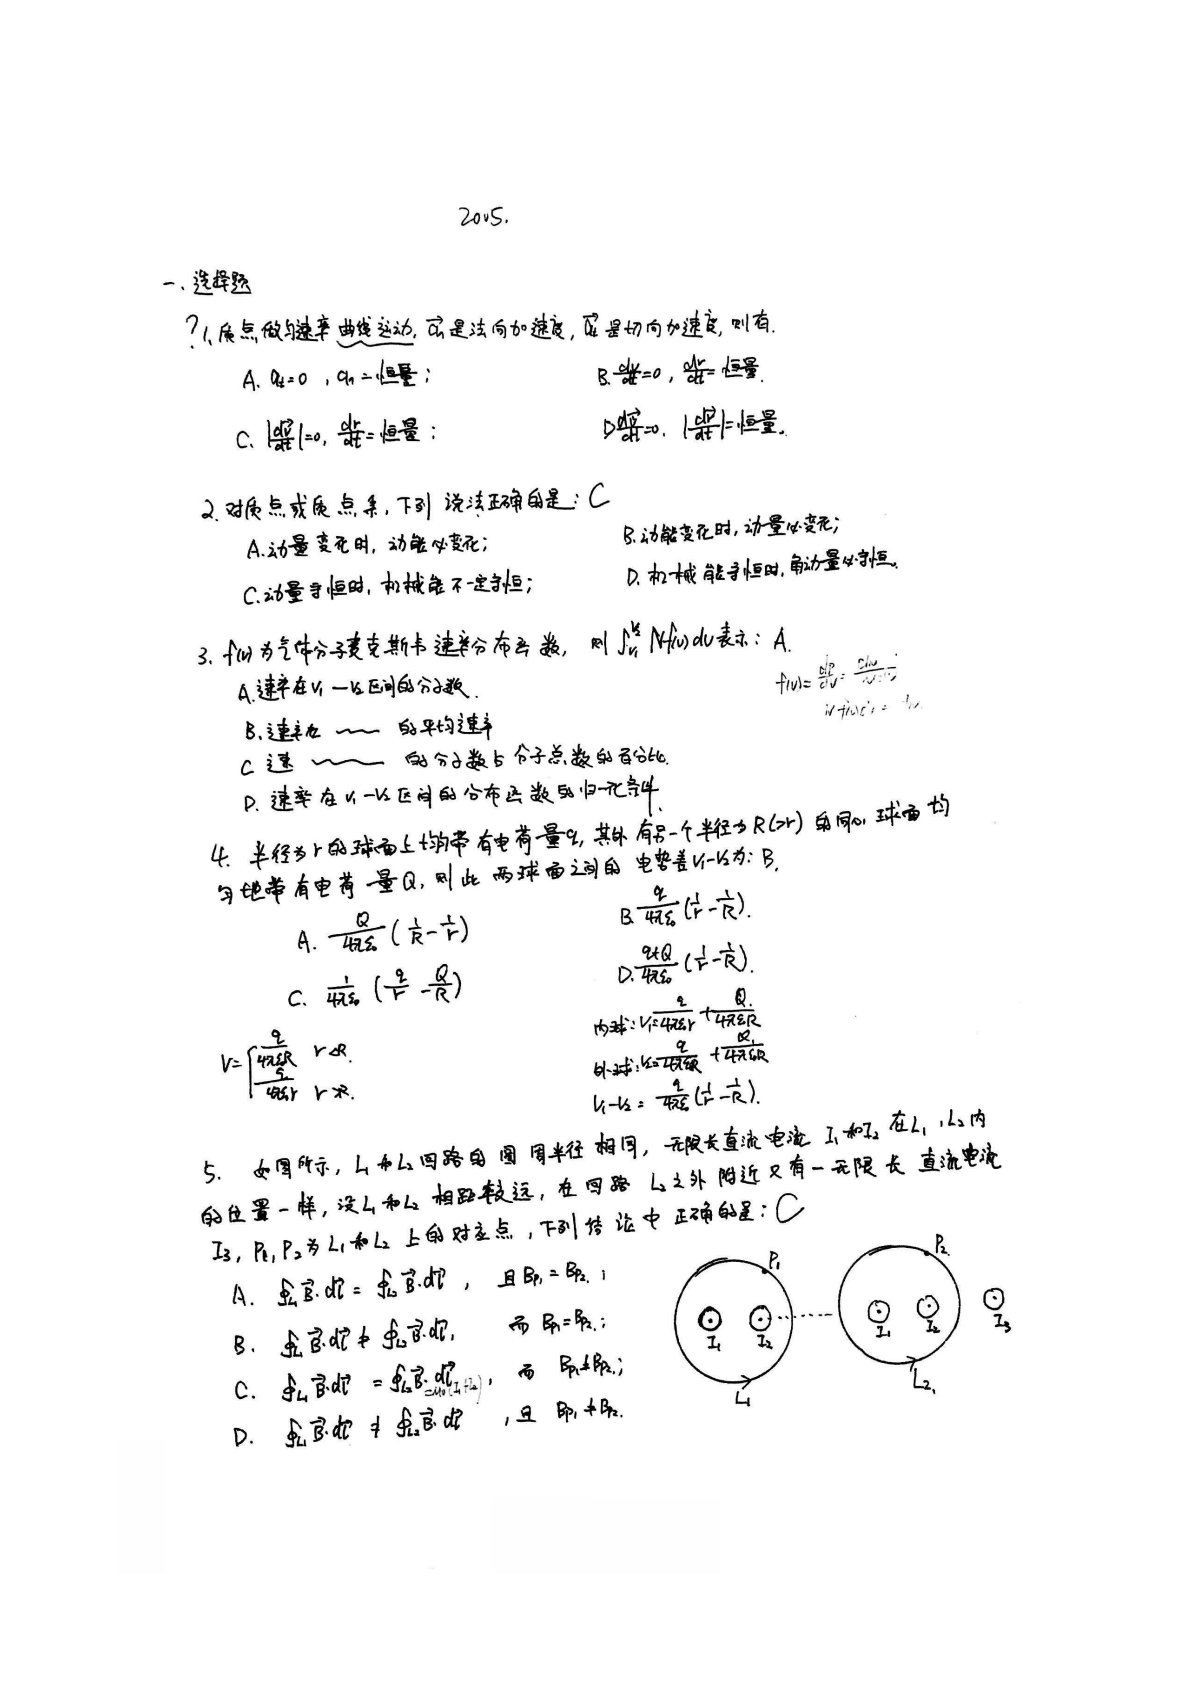 2005.
一、选择题
?1、质点做匀速率曲线运动, a⃗n是法向加速度, a⃗t是切向加速度, 则有.
A. at=0 , an=恒量;
B. dv/dt=0, dr/dt=恒量.
C. |dv⃗/dt|=0, dr/dt=恒量;
D. dv⃗/dt=0. |dr⃗/dt|=恒量.
2. 对质点或质点系, 下列说法正确的是: C
A.动量变化时, 动能必变化;
B.动能变化时, 动量必变化;
C.动量守恒时, 机械能不一定守恒;
D. 机械能守恒时, 角动量必守恒.
3. f(v)为气体分子麦克斯韦速率分布函数, 则∫v₁^v₂ Nf(v)dv表示: A.
A.速率在V₁—V₂区间的分子数.
B.速率在 —— 的平均速率
C 速 —— 的分子数占分子总数的百分比.
D. 速率在V₁—V₂区间的分布函数的归一化条件.
4. 半径为r的球面上均带有电荷量q, 其外有另一个半径为R(>r)的同心球面均
匀地带有电荷量Q, 则此两球面之间的电势差V₁-V₂为: B.
A. Q/4πε₀ (1/R - 1/r)
B. q/4πε₀ (1/r - 1/R).
C. 1/4πε₀ (q/r - Q/R)
D. q+Q/4πε₀ (1/r - 1/R).
内球: V₁= q/4πεr + Q/4πεR
V= { q/4πεR r<R.
q/4πεr r>R.
外球: V₂= q/4πεR + Q/4πεR
V₁-V₂= q/4πε₀ (1/r - 1/R).
5. 如图所示, L₁和L₂回路的圆周半径相同, 无限长直流电流 I₁和I₂在L₁,L₂内
的位置一样, 设L₁和L₂相距较远, 在回路L₂之外附近又有一无限长直流电流
I₃, P₁,P₂为L₁和L₂上的对应点, 下列结论中正确的是: C
A. ∮L₁B⃗·dl⃗ = ∮L₂B⃗·dl⃗ , 且BP₁=BP₂. ;
B. ∮L₁B⃗·dl⃗ ≠ ∮L₂B⃗·dl⃗, 而 BP₁=BP₂.;
C. ∮L₁B⃗·dl⃗ = ∮L₂B⃗·dl⃗ =μ₀(I₁+I₂), 而 BP₁≠BP₂.;
D. ∮L₁B⃗·dl⃗ ≠ ∮L₂B⃗·dl⃗ , 且 BP₁≠BP₂.
P₁
P₂
I₁ I₂
I₁ I₂
I₃
L₁
L₂.